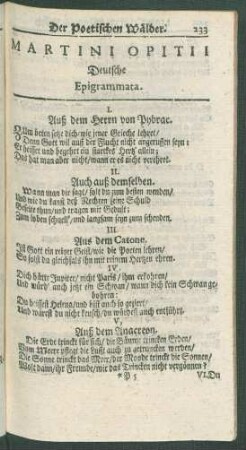 Der Poetischen Wälder. 233
MARTINI OPITII
Deutsche
Epigrammata.
I.
Auß dem Herrn von Pybrac.
Zum beten setze dich/wie jener Grieche lehret/
Denn Gott wil auß der Flucht nicht angeruffen seyn:
Er heisset und begehrt ein starckes Hertz allein;
Das hat man aber nicht/wann er es nicht verehrt.
II.
Auch auß demselben.
Wann man dir sagt/ sol du zum besten wenden/
Und wie du kanst deß Nechsten seine Schuld
Beseite thun/und tragen mit Gedult:
Zum loben schnell/ und langsam seyn zum schenden.
III
Aus dem Catone.
Ist Gott ein reiner Geist/wie die Poeten lehren/
So solst du gleichfals ihn mit reinem Hertzen ehren.
IV.
Dich hätte Jupiter/ nicht Paris/ ihm erkohren/
Und würd' auch jetzt ein Schwan/ wann dich kein Schwan ge-
bohren:
Du heissest Helena/und bist auch so geziert/
Und wärest du nicht keusch/du würdest auch entführt.
V.
Auß dem Anacreon.
Die Erde trinckt für sich/ die Bäume trincken Erden/
Vom Meere pflegt die Lufft auch zu getruncken werden/
Die Sonne trinckt das Meer/ der Monde trinckt die Sonnen/
Wolt dann/ihr Freunde/mir das Trincken nicht vergönnen?
P 5 VI. Du